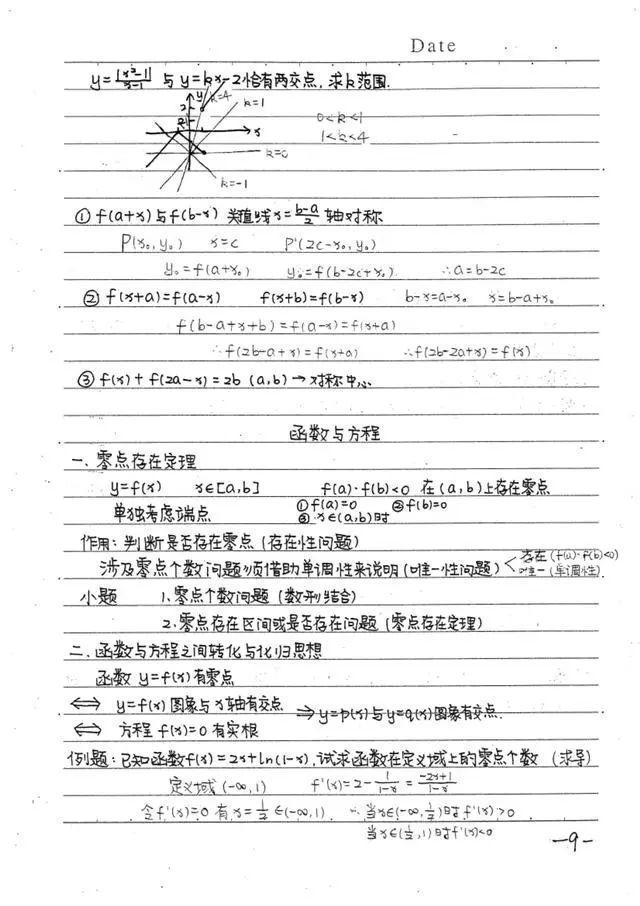 Date
y=|x²-1|/(x-1) 与 y=kx-2恰有两交点, 求k范围.
y k=4
k=1
2
0<k<1
x
1<k<4
k=0
k=-1
① f(a+x)与f(b-x) 关直线x=(b-a)/2 轴对称
P(x₀,y₀) x=c P'(2c-x₀,y₀)
y₀=f(a+x₀) y₀=f(b-2c+x₀). ∴a=b-2c
② f(x+a)=f(a-x) f(x+b)=f(b-x) b-x=a-x₀ x=b-a+x₀
f(b-a+x+b)=f(a-x)=f(x+a)
∴f(2b-a+x)=f(x+a) ∴f(2b-2a+x)=f(x)
③ f(x)+f(2a-x)=2b (a,b)→对称中心
函数与方程
一、零点存在定理
y=f(x) x∈[a,b] f(a)·f(b)<0 在(a,b)上存在零点
单独考虑端点 ①f(a)=0 ②f(b)=0
③ x∈(a,b)时
作用:判断是否存在零点(存在性问题)
涉及零点个数问题须借助单调性来说明(唯一性问题) 存在(f(a)·f(b)<0)
唯一(单调性)
小题 1.零点个数问题(数形结合)
2.零点存在区间或是否存在问题(零点存在定理)
二.函数与方程之间转化与化归思想
函数 y=f(x)有零点
⇔ y=f(x)图象与x轴有交点 ⇒y=p(x)与y=q(x)图象有交点.
⇔ 方程f(x)=0有实根
例题:已知函数f(x)=2x+ln(1-x),试求函数在定义域上的零点个数 (求导)
定义域(-∞,1) f'(x)=2-1/(1-x)=(-2x+1)/(1-x)
令f'(x)=0 有x=1/2∈(-∞,1) ∴当x∈(-∞,1/2)时f'(x)>0
当x∈(1/2,1)时f'(x)<0
-9-